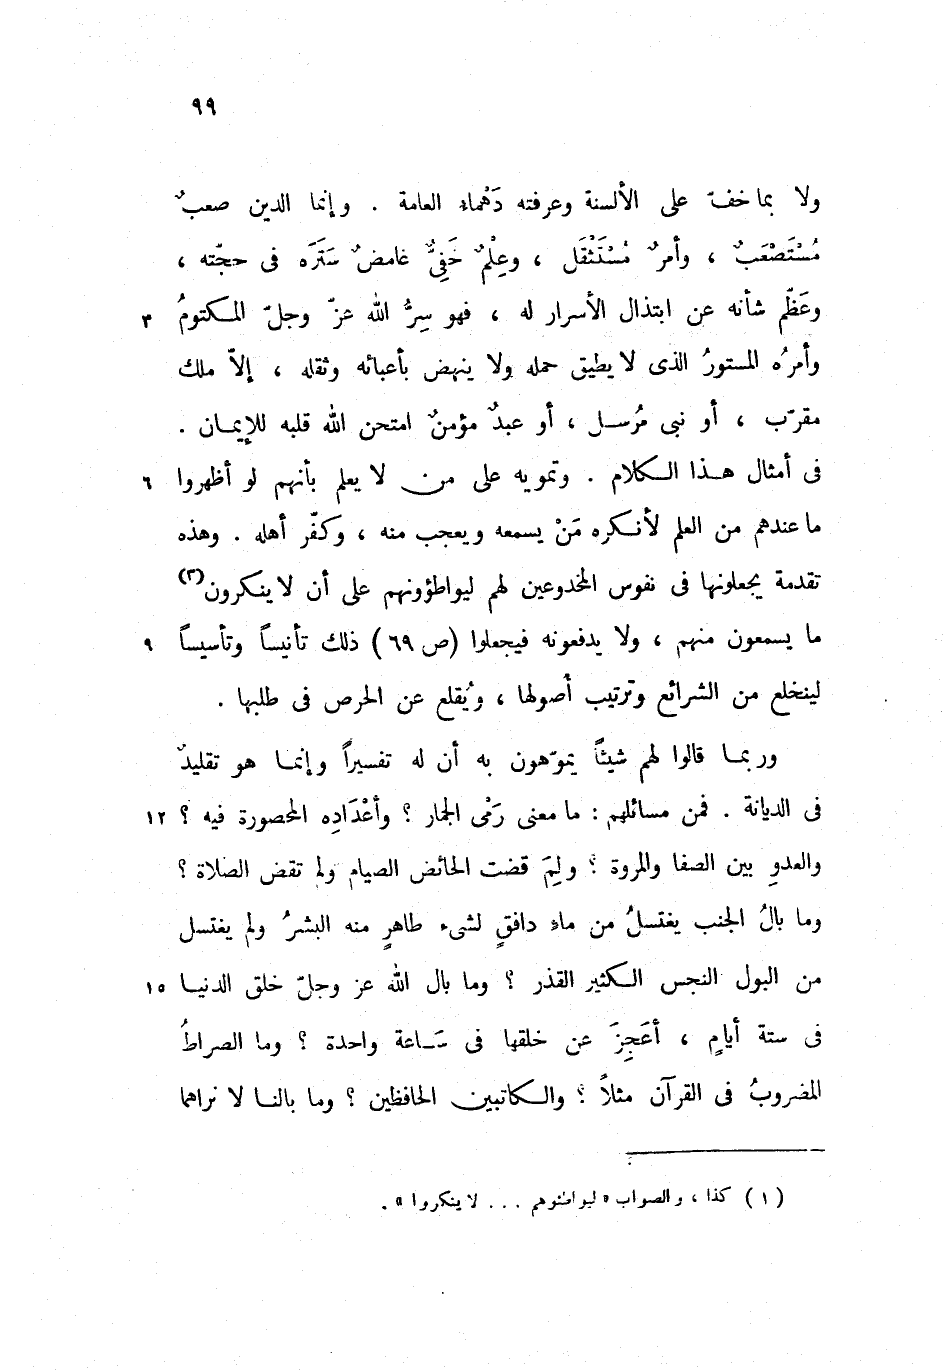 ٩٩
ولا بما خفّ على الألسنة وعرفته دَهْماء العامة . وإنما الدين صعبٌ
مُسْتَصْعَبٌ ، وأمرٌ مُسْتَثْقَل ، وعِلْمٌ خَفِيٌّ غامضٌ سَتَرَه فى حجّته ،
وعَظّم شأنه عن ابتذال الأسرار له ، فهو سِرُّ الله عزّ وجلّ المكتومُ ٣
وأمرُه المستورُ الذى لا يطيق حمله ولا ينهض بأعبائه وثقله ، إلاّ ملك
مقرّب ، أو نبى مُرسل ، أو عبدٌ مؤمنٌ امتحن الله قلبه للإيمان .
فى أمثال هذا الكلام . وتمويه على من لا يعلم بأنهم لو أظهروا ٦
ما عندهم من العلم لأنكره مَنْ يسمعه ويعجب منه ، وكفّر أهله . وهذه
تقدمة يجعلونها فى نفوس المخدوعين لهم ليواطؤونهم على أن لا ينكرون(٣)
ما يسمعون منهم ، ولا يدفعونه فيجعلوا (ص ٦٩) ذلك تأنيساً وتأسيساً ٩
لينخلع من الشرائع وترتيب أُصولها ، ويُقلع عن الحرص فى طلبها .
وربما قالوا لهم شيئاً يموّهون به أن له تفسيراً وإنما هو تقليدٌ
فى الديانة . فمن مسائلهم : ما معنى رَمْى الجمار ؟ وأعْدَادِه المحصورة فيه ؟ ١٢
والعدوِ بين الصفا والمروة ؟ ولِمَ قضت الحائض الصيام ولم تقض الصلاة ؟
وما بالُ الجنب يغتسلُ من ماءٍ دافقٍ لشىء طاهرٍ منه البشرُ ولم يغتسل
من البول النجس الكثير القذر ؟ وما بال الله عز وجلّ خلق الدنيا ١٥
فى ستة أيامٍ ، أعَجِزَ عن خلقها فى سَاعة واحدة ؟ وما الصراطُ
المضروبُ فى القرآن مثلاً ؟ والكاتبين الحافظين ؟ وما بالنا لا نراهما
(١) كذا ، والصواب « ليواطئوهم . . . لا ينكروا » .